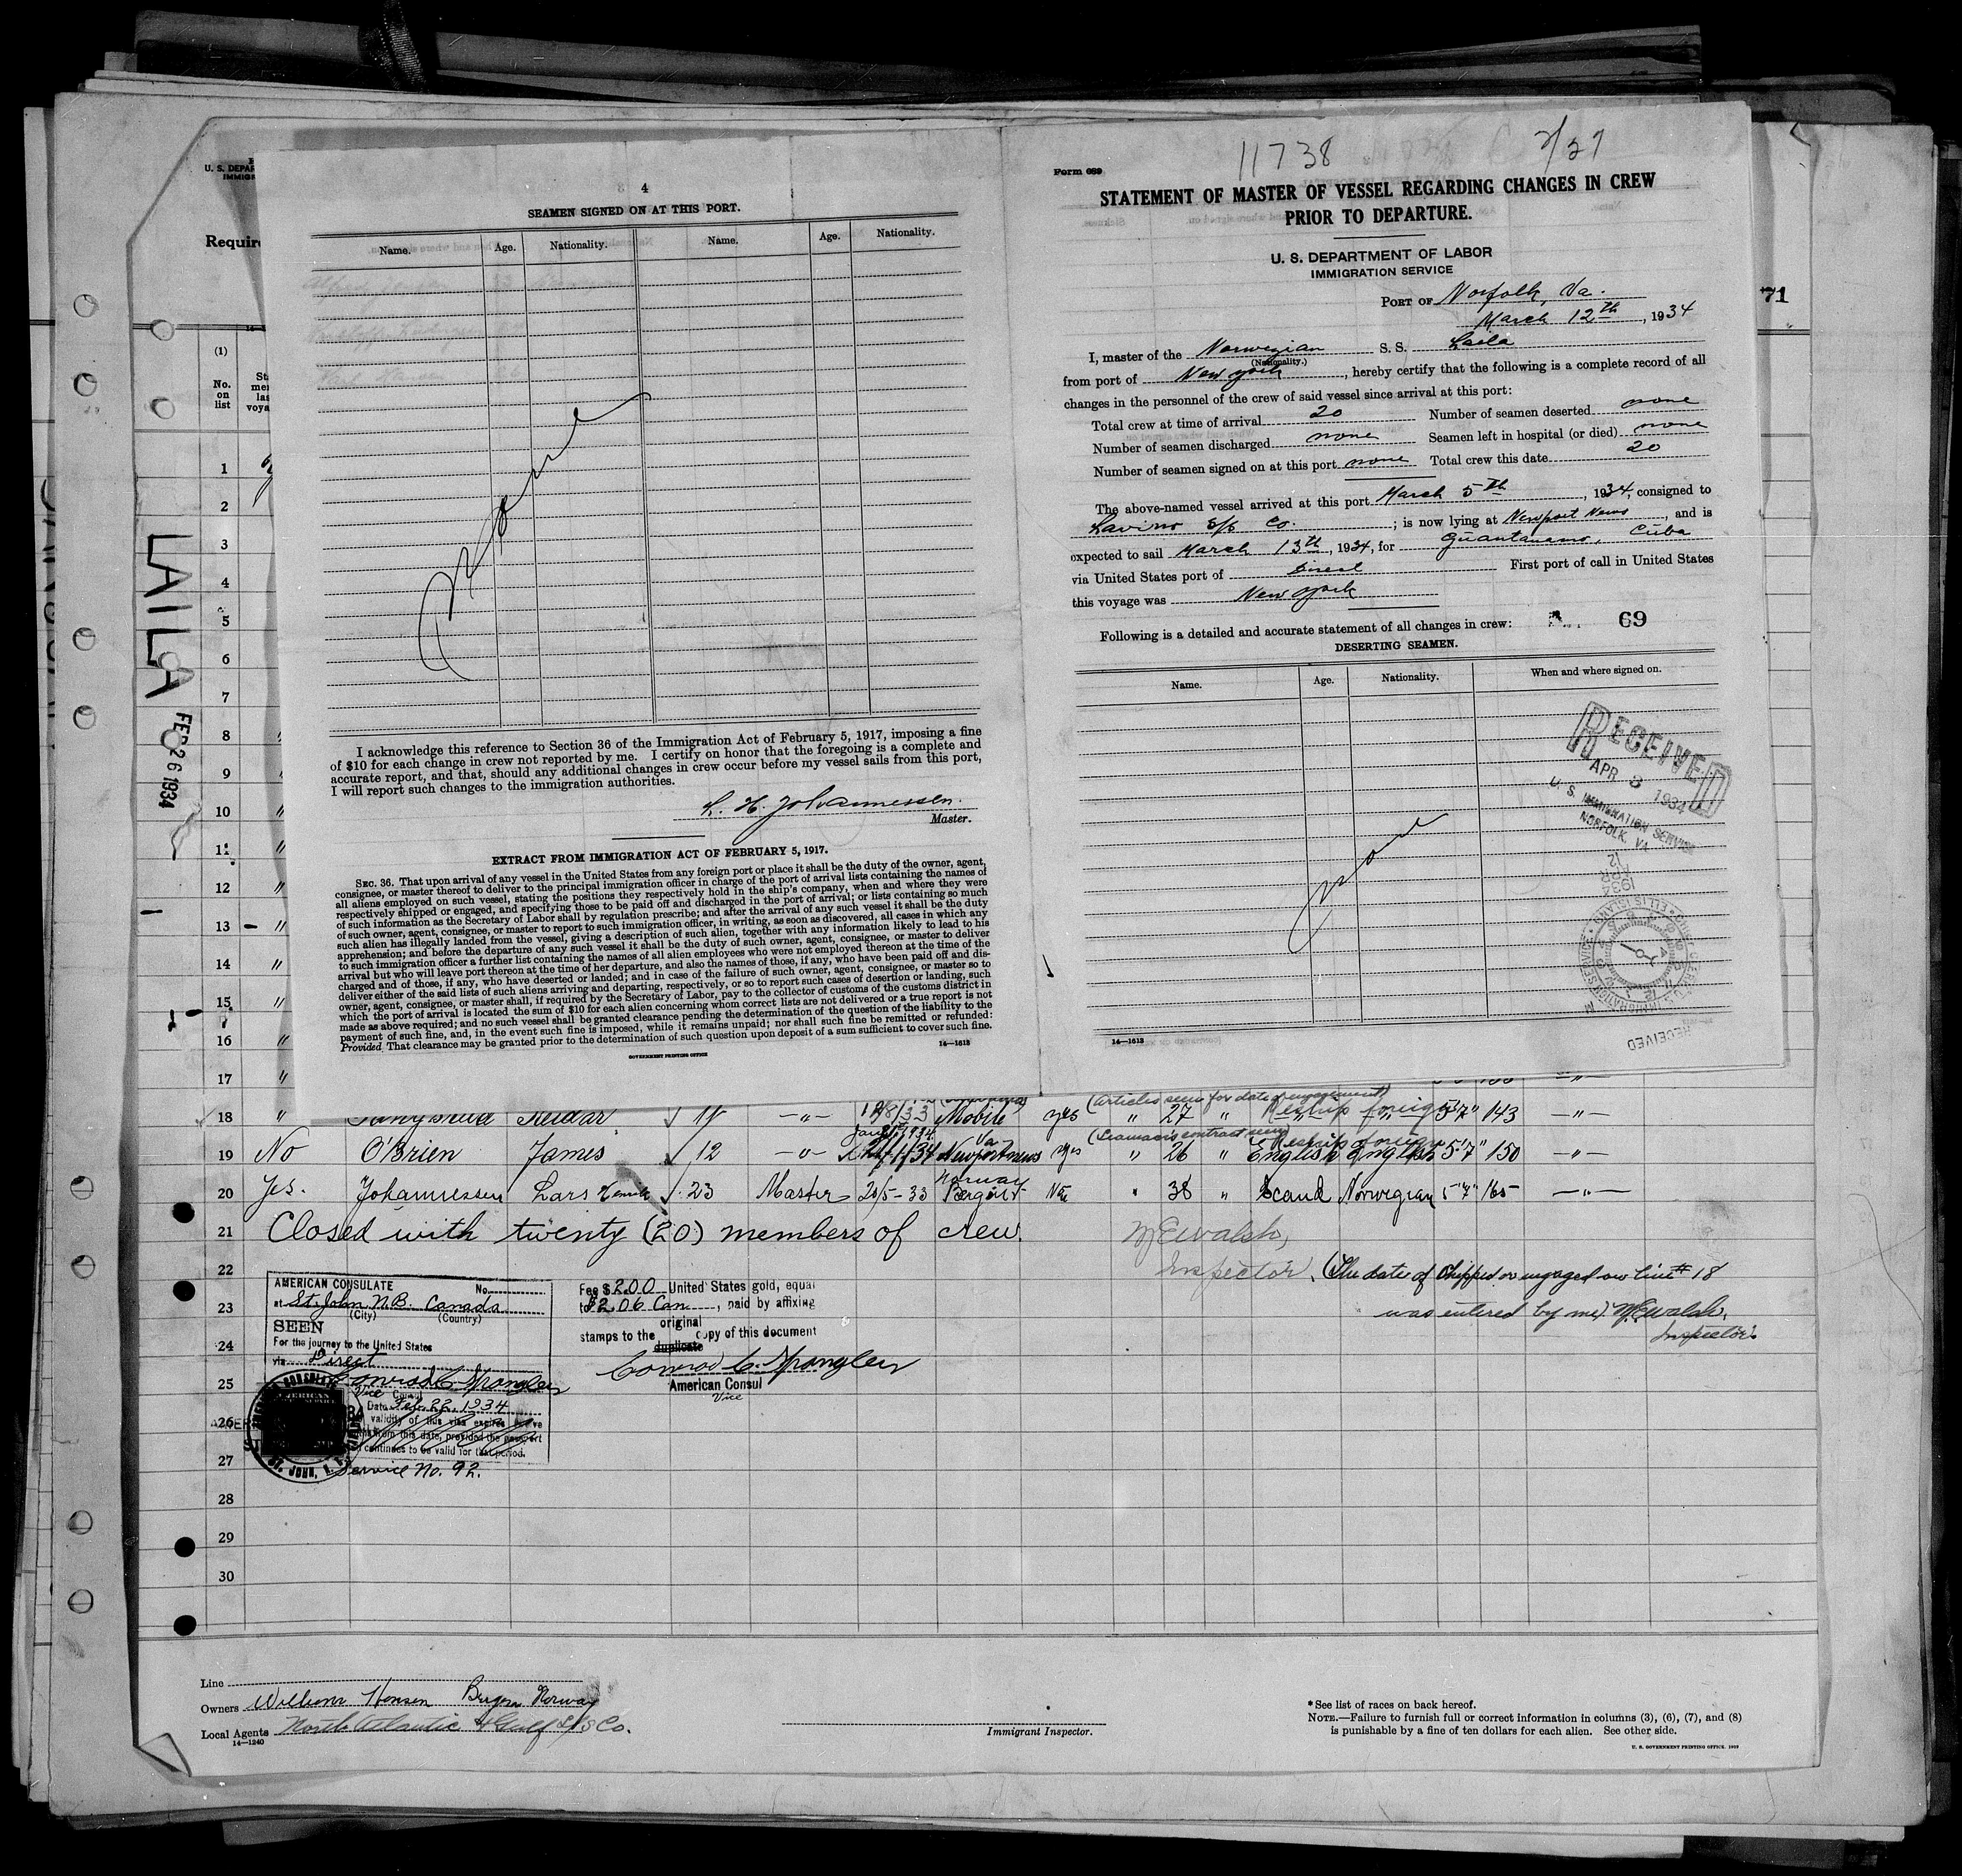 4
SEAMEN SIGNED ON AT THIS PORT.
Name. Age. Nationality. Name. Age. Nationality.
None
I acknowledge this reference to Section 36 of the Immigration Act of February 5, 1917, imposing a fine
of $10 for each change in crew not reported by me. I certify on honor that the foregoing is a complete and
accurate report, and that, should any additional changes in crew occur before my vessel sails from this port,
I will report such changes to the immigration authorities.
L. H. Johannessen.
Master.
EXTRACT FROM IMMIGRATION ACT OF FEBRUARY 5, 1917.
SEC. 36. That upon arrival of any vessel in the United States from any foreign port or place it shall be the duty of the owner, agent,
consignee, or master thereof to deliver to the principal immigration officer in charge of the port of arrival lists containing the names of
all aliens employed on such vessel, stating the positions they respectively hold in the ship's company, when and where they were
respectively shipped or engaged, and specifying those to be paid off and discharged in the port of arrival; or lists containing so much
of such information as the Secretary of Labor shall by regulation prescribe; and after the arrival of any such vessel it shall be the duty
of such owner, agent, consignee, or master to report to such immigration officer, in writing, as soon as discovered, all cases in which any
such alien has illegally landed from the vessel, giving a description of such alien, together with any information likely to lead to his
apprehension; and before the departure of any such vessel it shall be the duty of such owner, agent, consignee, or master to deliver
to such immigration officer a further list containing the names of all alien employees who were not employed thereon at the time of the
arrival but who will leave port thereon at the time of her departure, and also the names of those, if any, who have been paid off and dis-
charged and of those, if any, who have deserted or landed; and in case of the failure of such owner, agent, consignee, or master so to
deliver either of the said lists of such aliens arriving and departing, respectively, or so to report such cases of desertion or landing, such
owner, agent, consignee, or master shall, if required by the Secretary of Labor, pay to the collector of customs of the customs district in
which the port of arrival is located the sum of $10 for each alien concerning whom correct lists are not delivered or a true report is not
made as above required; and no such vessel shall be granted clearance pending the determination of the question of the liability to the
payment of such fine, and, in the event such fine is imposed, while it remains unpaid; nor shall such fine be remitted or refunded:
Provided That clearance may be granted prior to the determination of such question upon deposit of a sum sufficient to cover such fine.
GOVERNMENT PRINTING OFFICE 14—1613
11738 2/27
Form 689
STATEMENT OF MASTER OF VESSEL REGARDING CHANGES IN CREW
PRIOR TO DEPARTURE.
U. S. DEPARTMENT OF LABOR
IMMIGRATION SERVICE
PORT OF Norfolk, Va.
March 12th, 1934
I, master of the Norwegian S. S. Laila
(Nationality.)
from port of New York, hereby certify that the following is a complete record of all
changes in the personnel of the crew of said vessel since arrival at this port:
Total crew at time of arrival 20 Number of seamen deserted none
Number of seamen discharged none Seamen left in hospital (or died) none
Number of seamen signed on at this port none Total crew this date 20
The above-named vessel arrived at this port March 5th, 1934, consigned to
Lavino S/S Co.; is now lying at Newport News, and is
expected to sail March 13th, 1934, for Guantanamo, Cuba
via United States port of Direct First port of call in United States
this voyage was New York
Following is a detailed and accurate statement of all changes in crew: 69
DESERTING SEAMEN.
Name. Age. Nationality. When and where signed on.
None
RECEIVED
APR 3 1934
U. S. IMMIGRATION SERVICE
NORFOLK, VA
12
APR
1934
RECEIVED
14—1613
71
U. S. DEPAR
IMMIGR
Require
LAILA
FEB 26 1934
(1)
No.
on
list
1
2
3
4
5
6
7
8 "
9 "
10 "
11 "
12 "
13 "
14 "
15 "
16 "
17 "
18 " Reidar 28/33 Mobile yes (Articles seen for date of engagement) " 27 " 5'7" 143 —"—
19 No O'Brien James 12 —"— Newport news yes (Seaman's contract seen) " 26 " English English 5'7" 150 —"—
20 Yes. Johannessen Lars Henrik 23 Master 20/5-33 Bergen Norway " 38 " Scand Norwegian 5'7" 165 —"—
21 Closed with twenty (20) members of crew. M E Walsh,
22 Inspector. (The date of Shipped or engaged on line # 18
23 was entered by me) M E Walsh,
Inspector
24
25
26
27
28
29
30
AMERICAN CONSULATE No.
at St. John N.B. Canada
(City) (Country)
SEEN
For the journey to the United States
via Direct
Conrad C. Spangler
Vice Consul
Date Feb. 22, 1934
validity of this visa expires
from this date, provided the passport
continues to be valid for that period.
Service No. 92.
Fee $2.00 United States gold, equal
to $2.06 Can, paid by affixing
original
stamps to the duplicate copy of this document
Conrad C. Spangler
American Consul
Vice
Line
Owners William Hansen Bergen Norway
Local Agents North Atlantic & Gulf S/S Co.
14—1240
Immigrant Inspector.
* See list of races on back hereof.
NOTE.—Failure to furnish full or correct information in columns (3), (6), (7), and (8)
is punishable by a fine of ten dollars for each alien. See other side.
U. S. GOVERNMENT PRINTING OFFICE